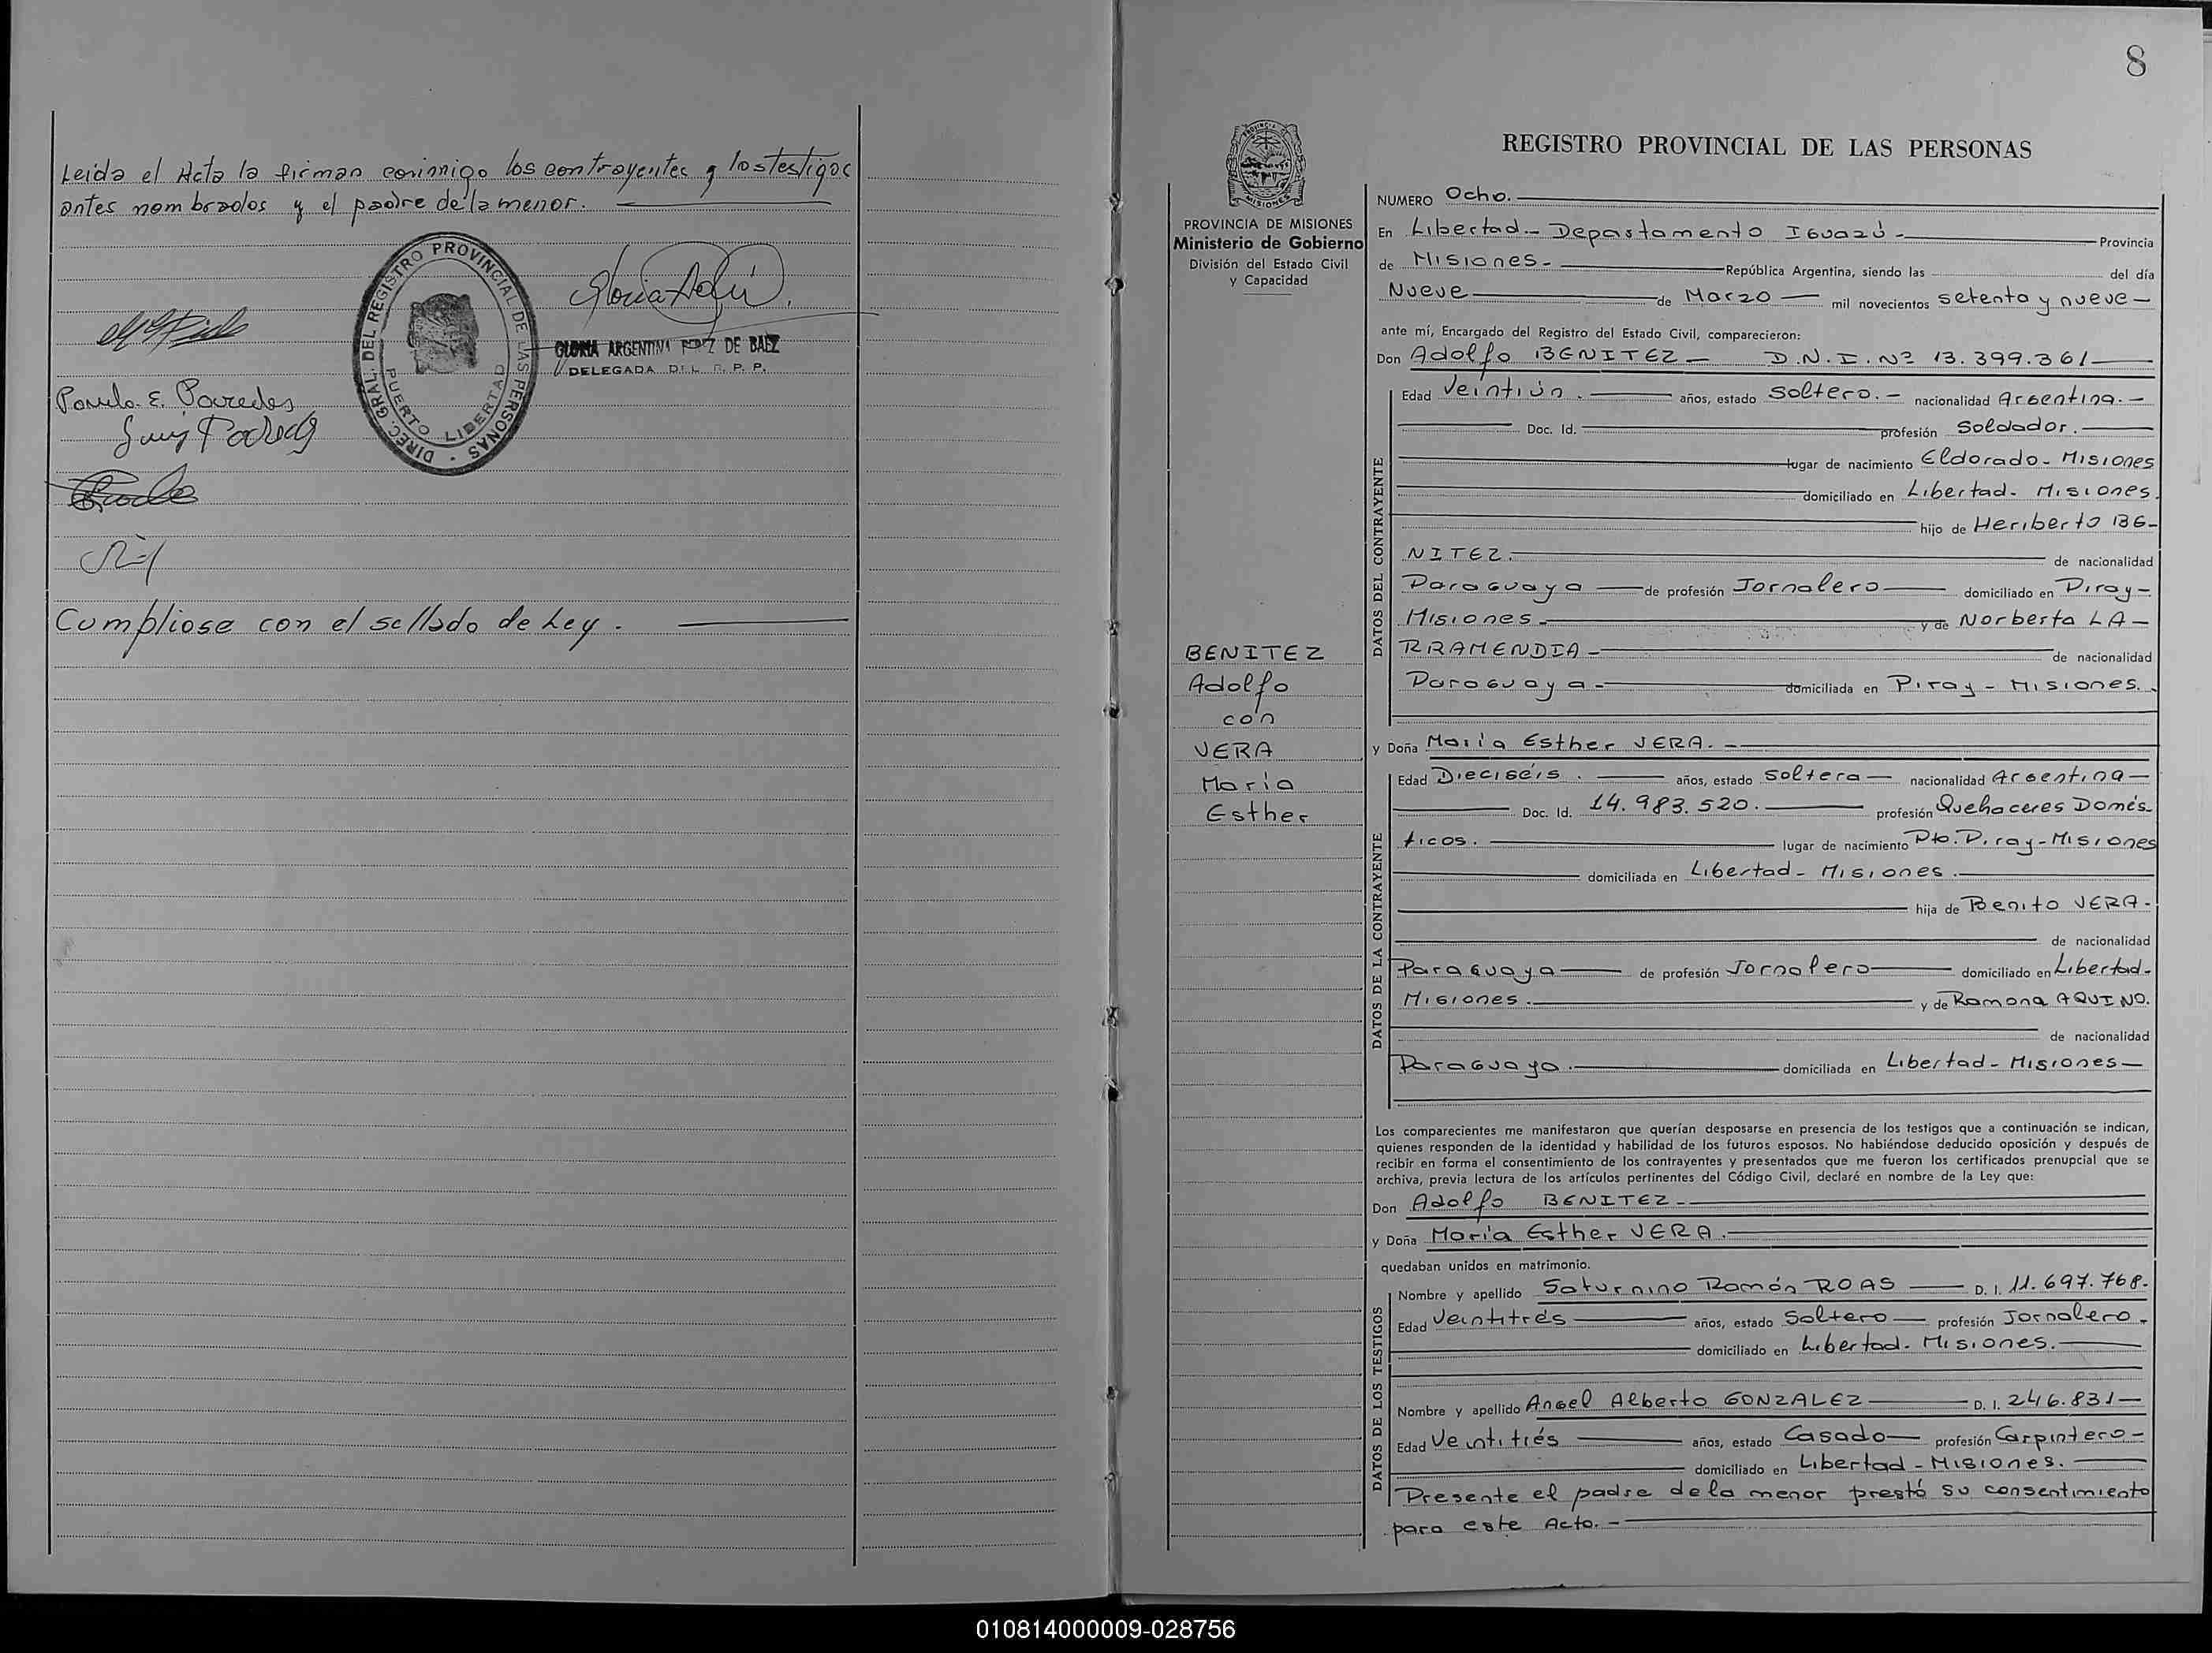 Leida el Acta la firman conmigo los contrayentes y los testigos
antes nombrados y el padre de la menor.
DIREC. GRAL. DEL REGISTRO PROVINCIAL DE LAS PERSONAS
PUERTO LIBERTAD
GLORIA ARGENTINA PEREZ DE BAEZ
DELEGADA DEL R. P. P.
E. Paredes
Cumpliose con el sellado de Ley.
8
PROVINCIA DE MISIONES
Ministerio de Gobierno
División del Estado Civil
y Capacidad
BENITEZ
Adolfo
con
VERA
María
Esther
REGISTRO PROVINCIAL DE LAS PERSONAS
NUMERO Ocho.
En Libertad.- Departamento Iguazú - Provincia
de Misiones.- República Argentina, siendo las del día
Nueve de Marzo mil novecientos setenta y nueve
ante mí, Encargado del Registro del Estado Civil, comparecieron:
Don Adolfo BENITEZ - D.N.I. Nº 13.399.361
Edad Veintiún. años, estado Soltero.- nacionalidad Argentina.-
Doc. Id. profesión Soldador.
lugar de nacimiento Eldorado - Misiones
domiciliado en Libertad - Misiones.
hijo de Heriberto BE-
NITEZ. de nacionalidad
Paraguaya de profesión Jornalero domiciliado en Piray -
Misiones - y de Norberta LA-
RRAMENDIA - de nacionalidad
Paraguaya - domiciliada en Piray - Misiones.
y Doña María Esther VERA. -
Edad Dieciséis. años, estado Soltera nacionalidad Argentina
Doc. Id. 14.983.520. profesión Quehaceres Domés-
ticos. lugar de nacimiento Pto. Piray - Misiones
domiciliada en Libertad - Misiones.
hija de Benito VERA -
de nacionalidad
Paraguaya de profesión Jornalero domiciliado en Libertad -
Misiones. y de Ramona AQUINO.
de nacionalidad
Paraguaya. domiciliada en Libertad - Misiones
Los comparecientes me manifestaron que querían desposarse en presencia de los testigos que a continuación se indican,
quienes responden de la identidad y habilidad de los futuros esposos. No habiéndose deducido oposición y después de
recibir en forma el consentimiento de los contrayentes y presentados que me fueron los certificados prenupcial que se
archiva, previa lectura de los artículos pertinentes del Código Civil, declaré en nombre de la Ley que:
Don Adolfo BENITEZ -
y Doña María Esther VERA.
quedaban unidos en matrimonio.
Nombre y apellido Saturnino Ramón ROAS D. I. 11.697.768.
Edad Veintitrés años, estado Soltero profesión Jornalero.
domiciliado en Libertad - Misiones.
Nombre y apellido Angel Alberto GONZALEZ D. I. 246.831
Edad Veintitrés años, estado Casado profesión Carpintero -
domiciliado en Libertad - Misiones.
Presente el padre de la menor prestó su consentimiento
para este Acto. -
DATOS DEL CONTRAYENTE
DATOS DE LA CONTRAYENTE
DATOS DE LOS TESTIGOS
010814000009-028756